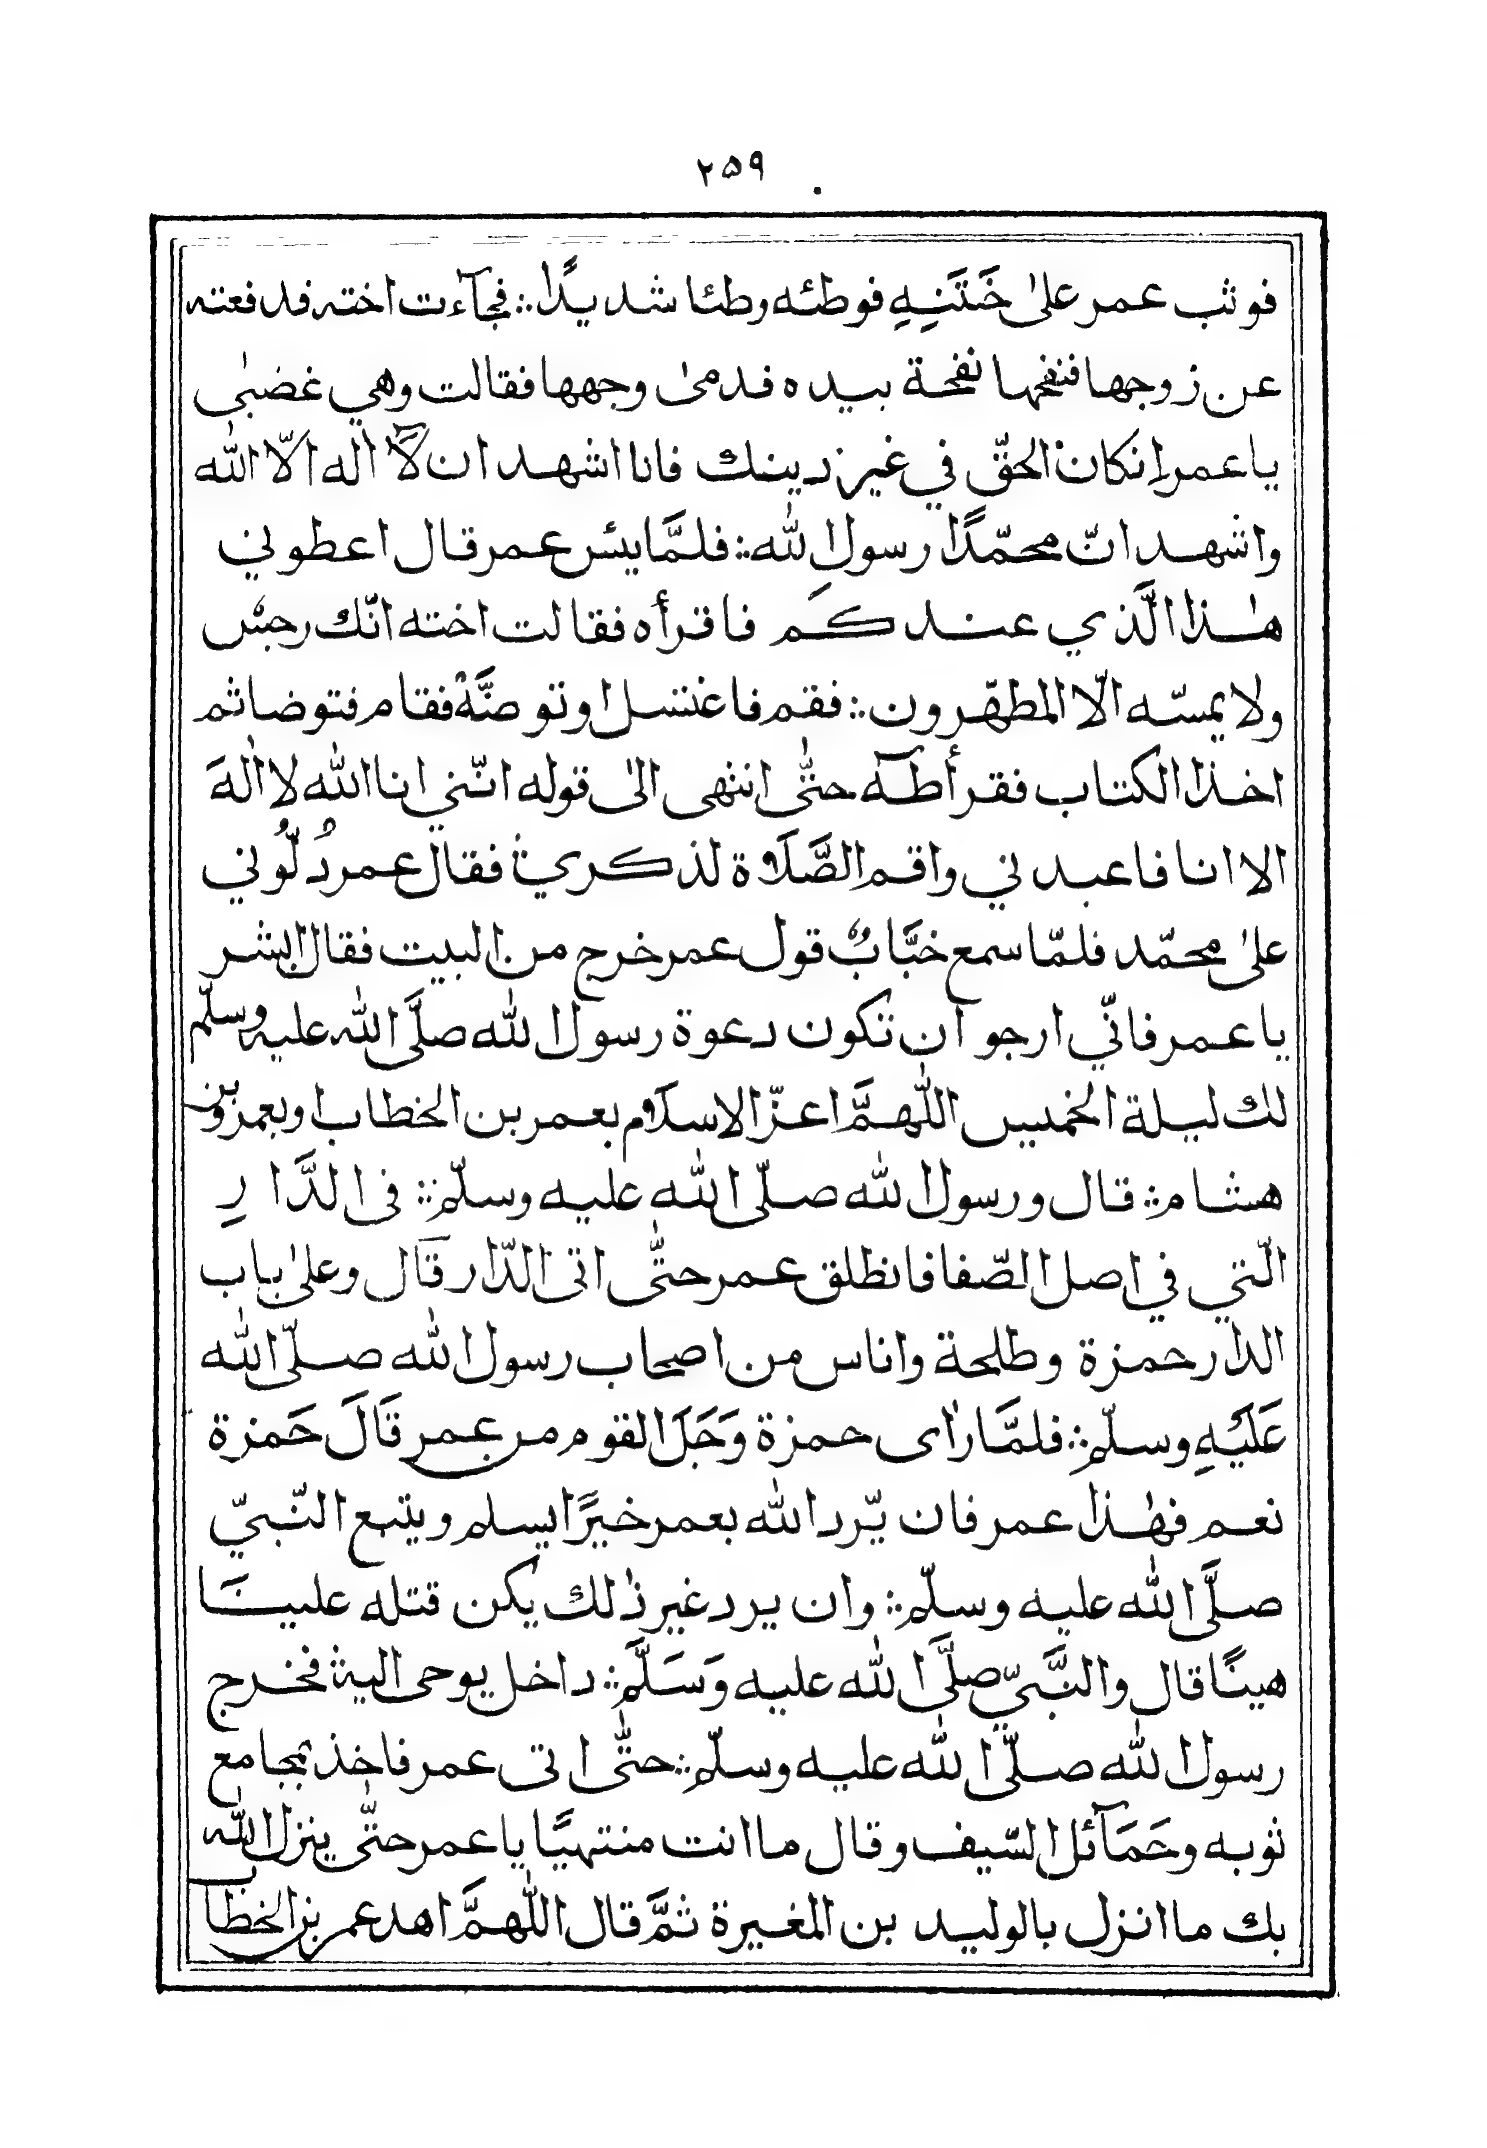 ۲۵۹
فوثب عمر علىٰ خَتَنِهِ فوطئه وطئا شديدًا ∴ فجآءت اخته فدفعته
عن زوجها فنفخها نفحة بيده فدمىٰ وجهها فقالت وهي غضبٰى
ياعمر اِنكان الحقّ في غير دينك فانا اشهد ان لّآ اله الّا اللّٰه
واشهد انّ محمّدًا رسول اللّٰه ∴ فلمَّا يئس عمر قال اعطوني
هٰذا الَّذي عندكَم فاقرأه فقالت اخته انّك رجسٌ
ولا يمسّه الّا المطهّرون ∴ فقم فاغتسل او توضنَّهْ فقام فتوضا ثم
اخذ الكتاب فقرأ طٰهٓ حتّٰى انتهى الىٰ قوله انّني انا اللّٰه لا الٰهَ
الا انا فاعبدني واقم الصَّلَاوة لذكري ∴ فقال عمر دُلُّوني
علىٰ محمّد فلمّا سمع خبَّابٌ قول عمر خرج من البيت فقال ابشر
ياعمر فانّي ارجو ان تكون دعوة رسول اللّٰه صلَّى اللّٰه عليه وسلّم
لك ليلة الخميس اللّٰهمَّ اعزّ الاسلَام بعمر بن الخطاب او بعمرو بن
هشام ∴ قال ورسول اللّٰه صلّى اللّٰه عليه وسلّم ∴ فى الدَّارِ
الّتي في اصل الصّفا فانطلق عمر حتّٰى اتى الدّار قَال وعلىٰ باب
الدار حمزة وطلحة واناس من اصحاب رسول اللّٰه صلّى اللّٰه
عَلَيْهِ وسلّم ∴ فلمَّا راٰى حمزة وَجَلَ القوم من عمر قَالَ حَمزة
نعم فهٰذا عمر فان يّرد اللّٰه بعمر خيرًا يسلم ويتبع النّبيّ
صلَّى اللّٰه عليه وسلّم ∴ وان يرد غير ذٰلك يكن قتله علينَا
هينًا قال والنَّبيّ صلَّى اللّٰه عليه وَسَلَّم ∴ داخل يوحى اليه ∴ فخرج
رسول اللّٰه صلّى اللّٰه عليه وسلّم ∴ حتّٰى اتى عمر فاخذ بمجامع
ثوبه وحَمَآئل السّيف وقال ما انت منتهيًا يا عمر حتّٰى ينزل اللّٰه
بك ما انزل بالوليد بن المغيرة ثمَّ قال اللّٰهمَّ اهد عمر بن الخطاب